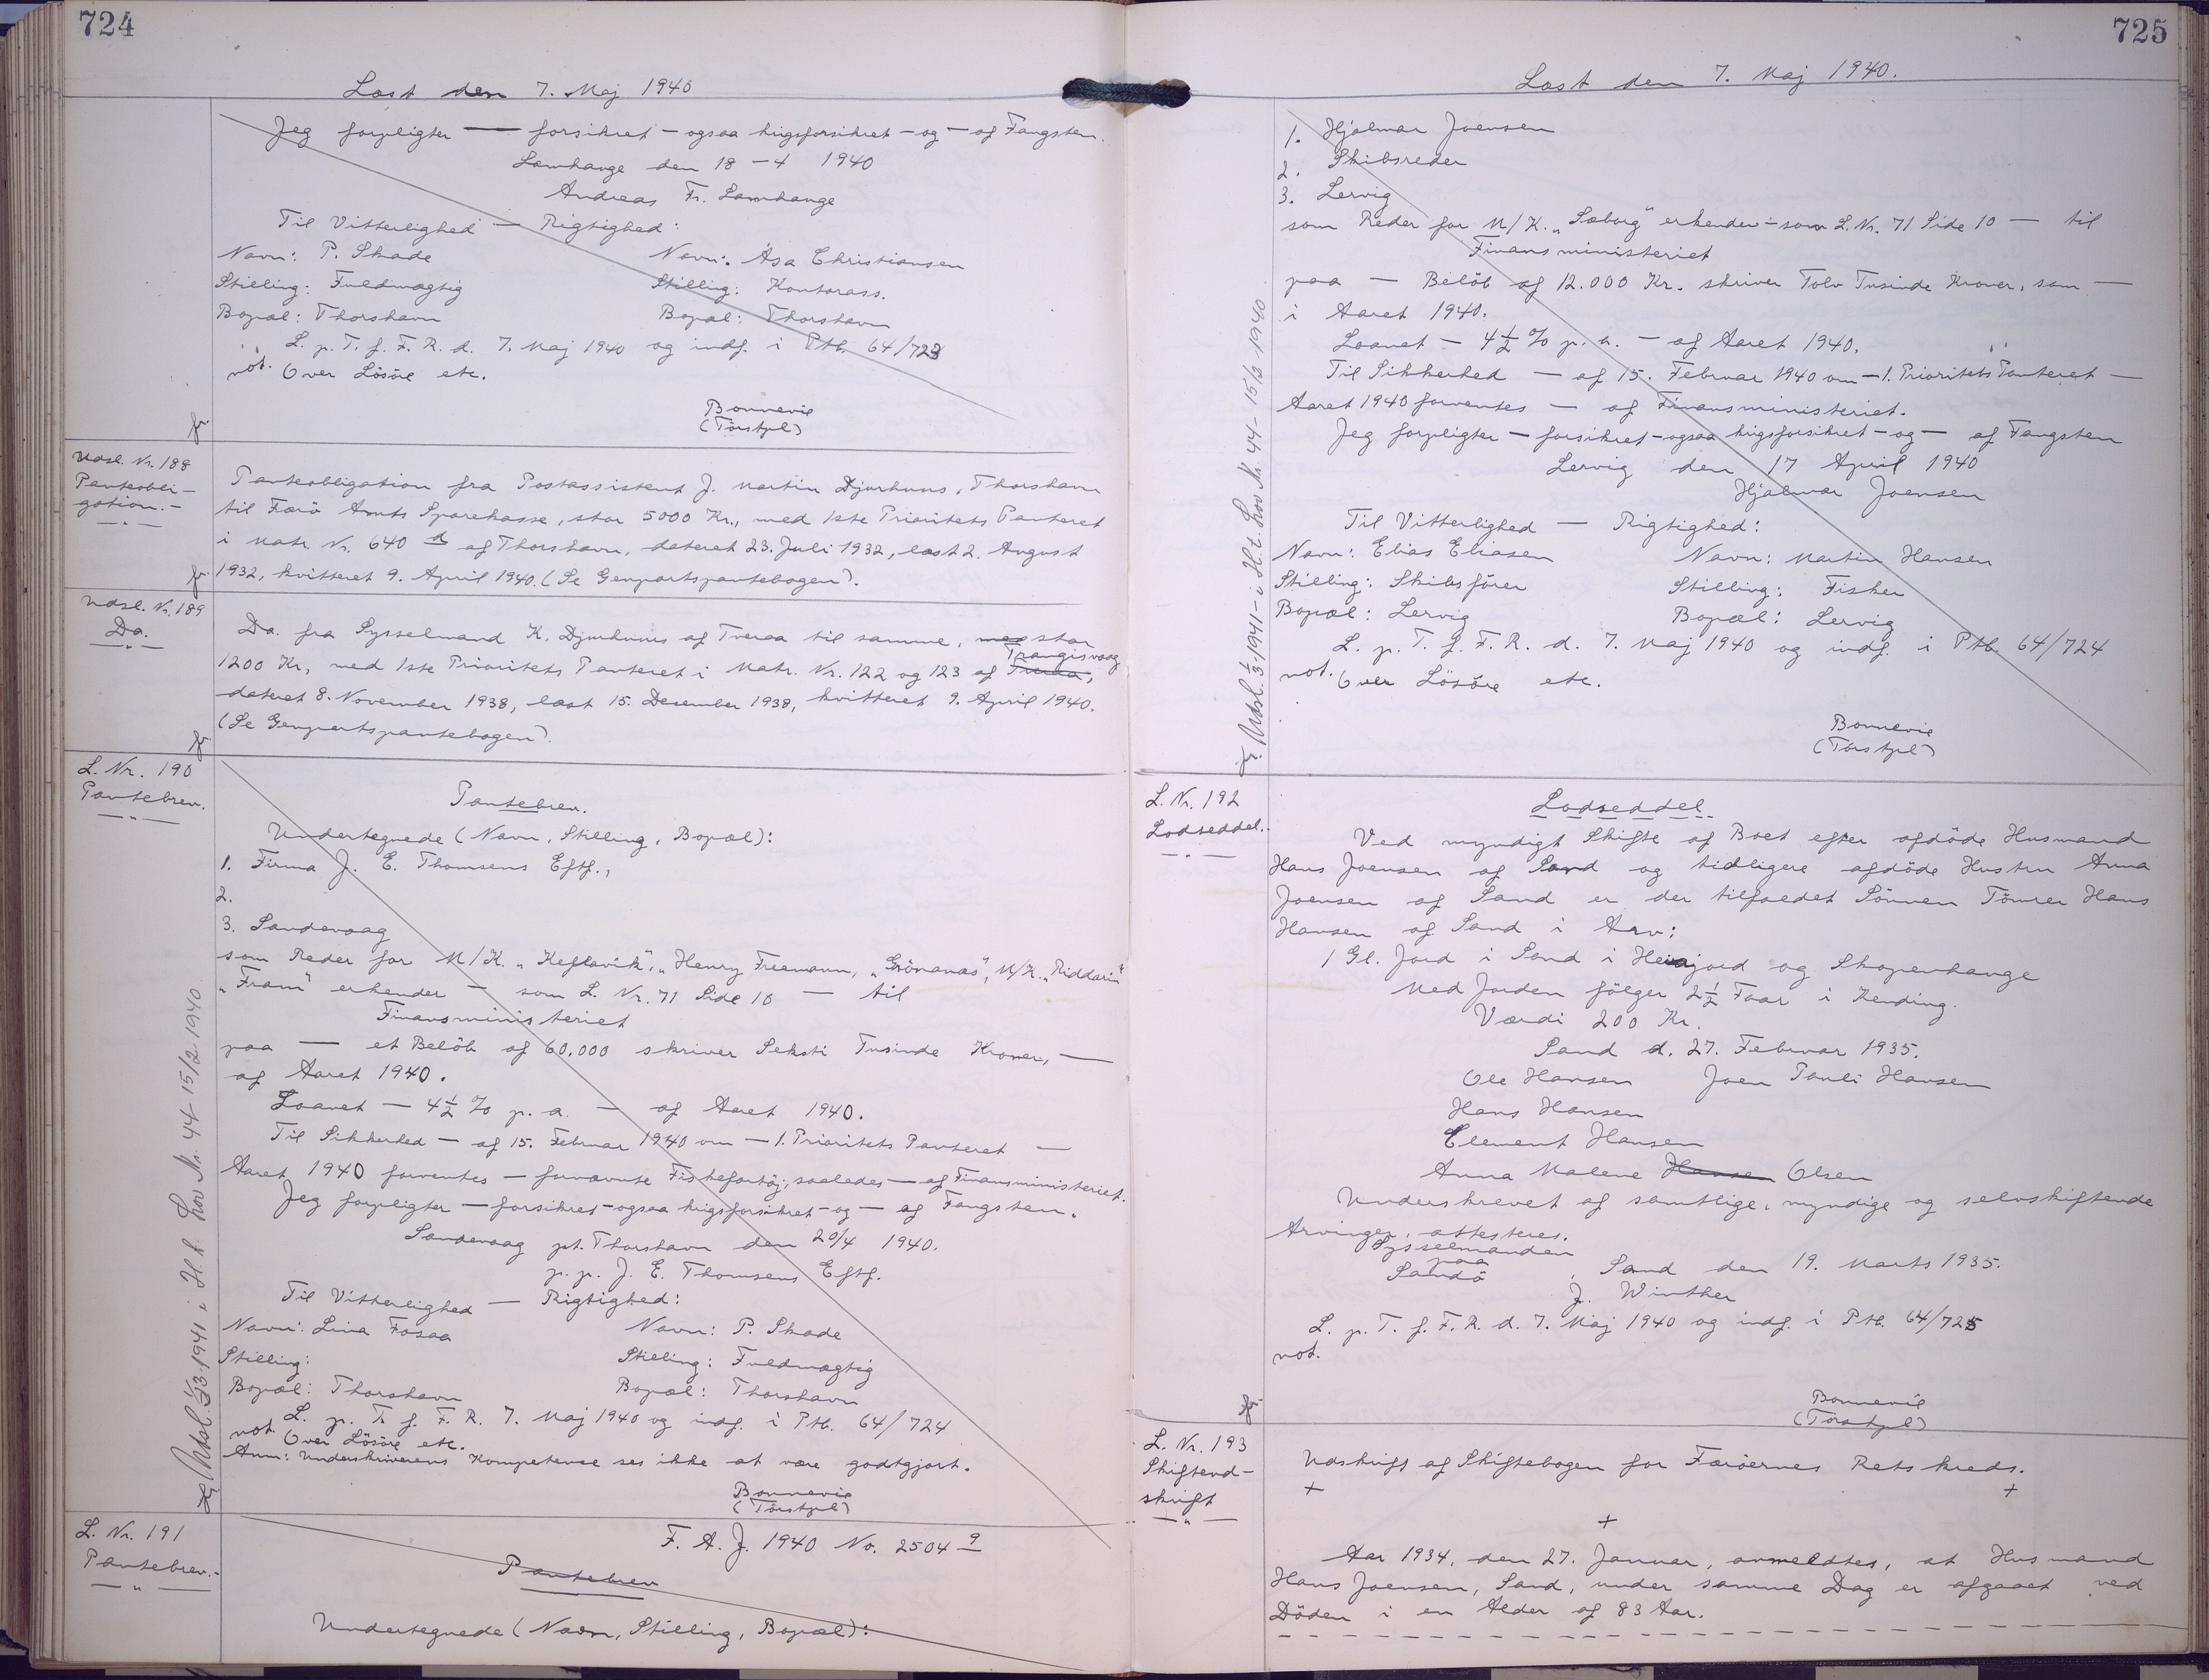 724
Læst den 7. Maj 1940
Jeg forpligter — forsikret – ogsaa krigsforsikret – og – af Fangsten.
Lamhauge den 18 – 4 1940
Andreas Fr. Lamhauge
Til Vitterlighed — Rigtighed:
Navn: P. Skade Navn: Ása Christiansen
Stilling: Fuldmægtig Stilling: Kontorass.
Bopæl: Thorshavn Bopæl: Thorshavn
L. p. T. f. F. R. d. 7. Maj 1940 og indf. i Ptb. 64/723
not. Over Lösöre etc.
Bonnevie
(Törstpl)
Udsl. Nr. 188
Panteobli-
gation.-
Panteobligation fra Postassistent J. Martin Djurhuus, Thorshavn
til Færö Amts Sparekasse, stor 5000 Kr., med 1ste Prioritets Panteret
i Matr. Nr. 640 d af Thorshavn, dateret 23. Juli 1932, læst 2. August
1932, kvitteret 9. April 1940. (Se Genpartspantebogen).
Udsl. Nr. 189
Do.
Do. fra Sysselmand K. Djurhuus af Tveraa til samme, stor
1200 Kr., med 1ste Prioritets Panteret i Matr. Nr. 122 og 123 af Tveraa, Trangisvaag
dateret 8. November 1938, læst 15. December 1938, kvitteret 9. April 1940.
(Se Genpartspantebogen).
L. Nr. 190
Pantebrev.
Pantebrev.
Undertegnede (Navn, Stilling, Bopæl):
1. Firma J. E. Thomsens Eftf.,
2.
3. Sandevaag
som Reder for M/K. „Keflavik", „Henry Freemann, „Grönanæs", M/K. „Riddarin"
„Fram" erkender — som L. Nr. 71 Side 10 — til
Finansministeriet
paa — et Beløb af 60.000 skriver Seksti Tusinde Kroner, —
af Aaret 1940.
Laanet — 4½ % p. a. — af Aaret 1940.
Til Sikkerhed — af 15. Februar 1940 om — 1. Prioritets Panteret —
Aaret 1940 forventes — fornævnte Fiskefartöj, saaledes — af Finansministeriet.
Jeg forpligter — forsikret – ogsaa krigsforsikret – og — af Fangsten.
Sandevaag pt. Thorshavn den 20/4 1940.
p. p. J. E. Thomsens Eftf.
Til Vitterlighed — Rigtighed:
Navn: Lina Fosaa Navn: P. Skade
Stilling: Stilling: Fuldmægtig
Bopæl: Thorshavn Bopæl: Thorshavn
L. p. T. f. F. R. 7. Maj 1940 og indf. i Ptb. 64/724
not. Over Lösöre etc.
Anm: Underskriverens Kompetence ses ikke at være godtgjort.
Bonnevie
(Törstpl)
Udsl. 1/3 1941 i H. t. Lov Nr. 44 – 15/2 1940.
L. Nr. 191
Pantebrev.-
F. A. J. 1940 No. 2504 9
Pantebrev
Undertegnede (Navn, Stilling, Bopæl):
725
Læst den 7. Maj 1940.
1. Hjalmar Joensen
2. Skibsreder
3. Lervig
som Reder for M/K. „Søborg" erkender – som L. Nr. 71 Side 10 — til
Finansministeriet
paa — Belöb af 12.000 Kr. skriver Tolv Tusinde Kroner, som —
i Aaret 1940.
Laanet — 4½ % p. a. — af Aaret 1940.
Til Sikkerhed — af 15. Februar 1940 om — 1. Prioritets Panteret —
Aaret 1940 forventes — af Finansministeriet.
Jeg forpligter — forsikret – ogsaa krigsforsikret – og — af Fangsten
Lervig den 17 April 1940
Hjalmar Joensen
Til Vitterlighed — Rigtighed:
Navn: Elias Eliasen Navn: Martin Hansen
Stilling: Skibsförer Stilling: Fisker
Bopæl: Lervig Bopæl: Lervig
L. p. T. f. F. R. d. 7. Maj 1940 og indf. i Ptb. 64/724
not. Over Lösöre etc.
Bonnevie
(Törstpl)
Udsl. 1/3 1941 – i H. t. Lov Nr. 44 – 15/2 1940
L. Nr. 192
Lodseddel.
Lodseddel.
Ved myndigt Skifte af Boet efter afdöde Husmand
Hans Joensen af Sand og tidligere afdöde Hustru Anna
Joensen af Sand er der tilfaldet Sönnen Tömrer Hans
Hansen af Sand i Arv:
1 Gl. Jord i Sand i Heiajord og Skopenhauge
Med Jorden fölger 2½ Faar i Kending.
Værdi 200 Kr.
Sand d. 27. Februar 1935.
Ole Hansen Joen Pauli Hansen
Hans Hansen
Clement Hansen
Anna Malene Hansen Olsen
Underskrevet af samtlige, myndige og selvskiftende
Arvinger, attesteres.
Sysselmanden
paa
Sandö, Sand den 19. Marts 1935.
J. Winther
L. p. T. f. F. R. d. 7. Maj 1940 og indf. i Ptb. 64/725
not.
Bonnevie
(Törstpl)
L. Nr. 193
Skifteud-
skrift
Udskrift af Skiftebogen for Færöernes Retskreds.
+ +
+
Aar 1934, den 27. Januar, anmeldtes, at Husmand
Hans Joensen, Sand, under samme Dag er afgaaet ved
Döden i en Alder af 83 Aar.